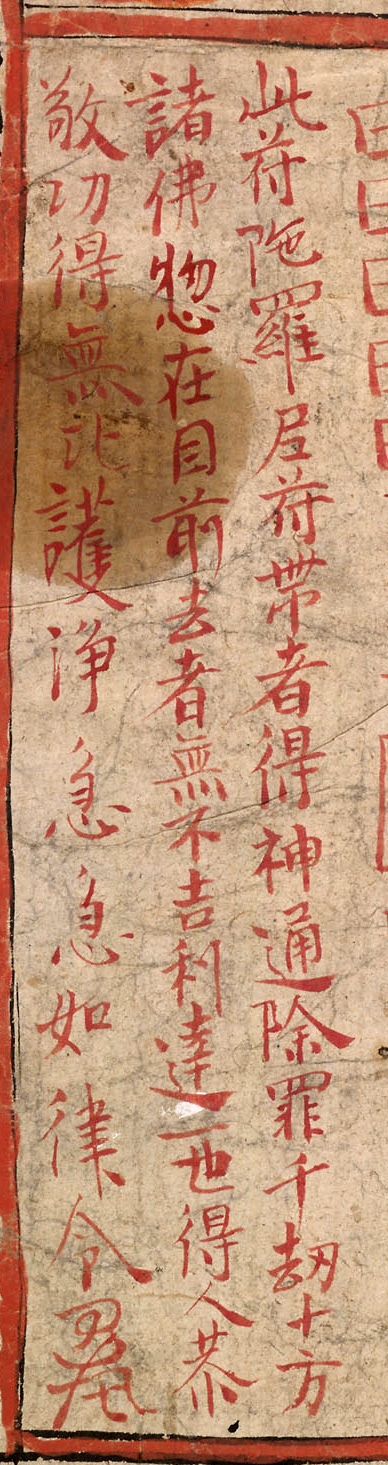 此符陁羅尼符帶者得神通除罪千劫十方
諸佛惣在目前去者無不吉利達一世得人恭
敬功得無比護淨急急如律令